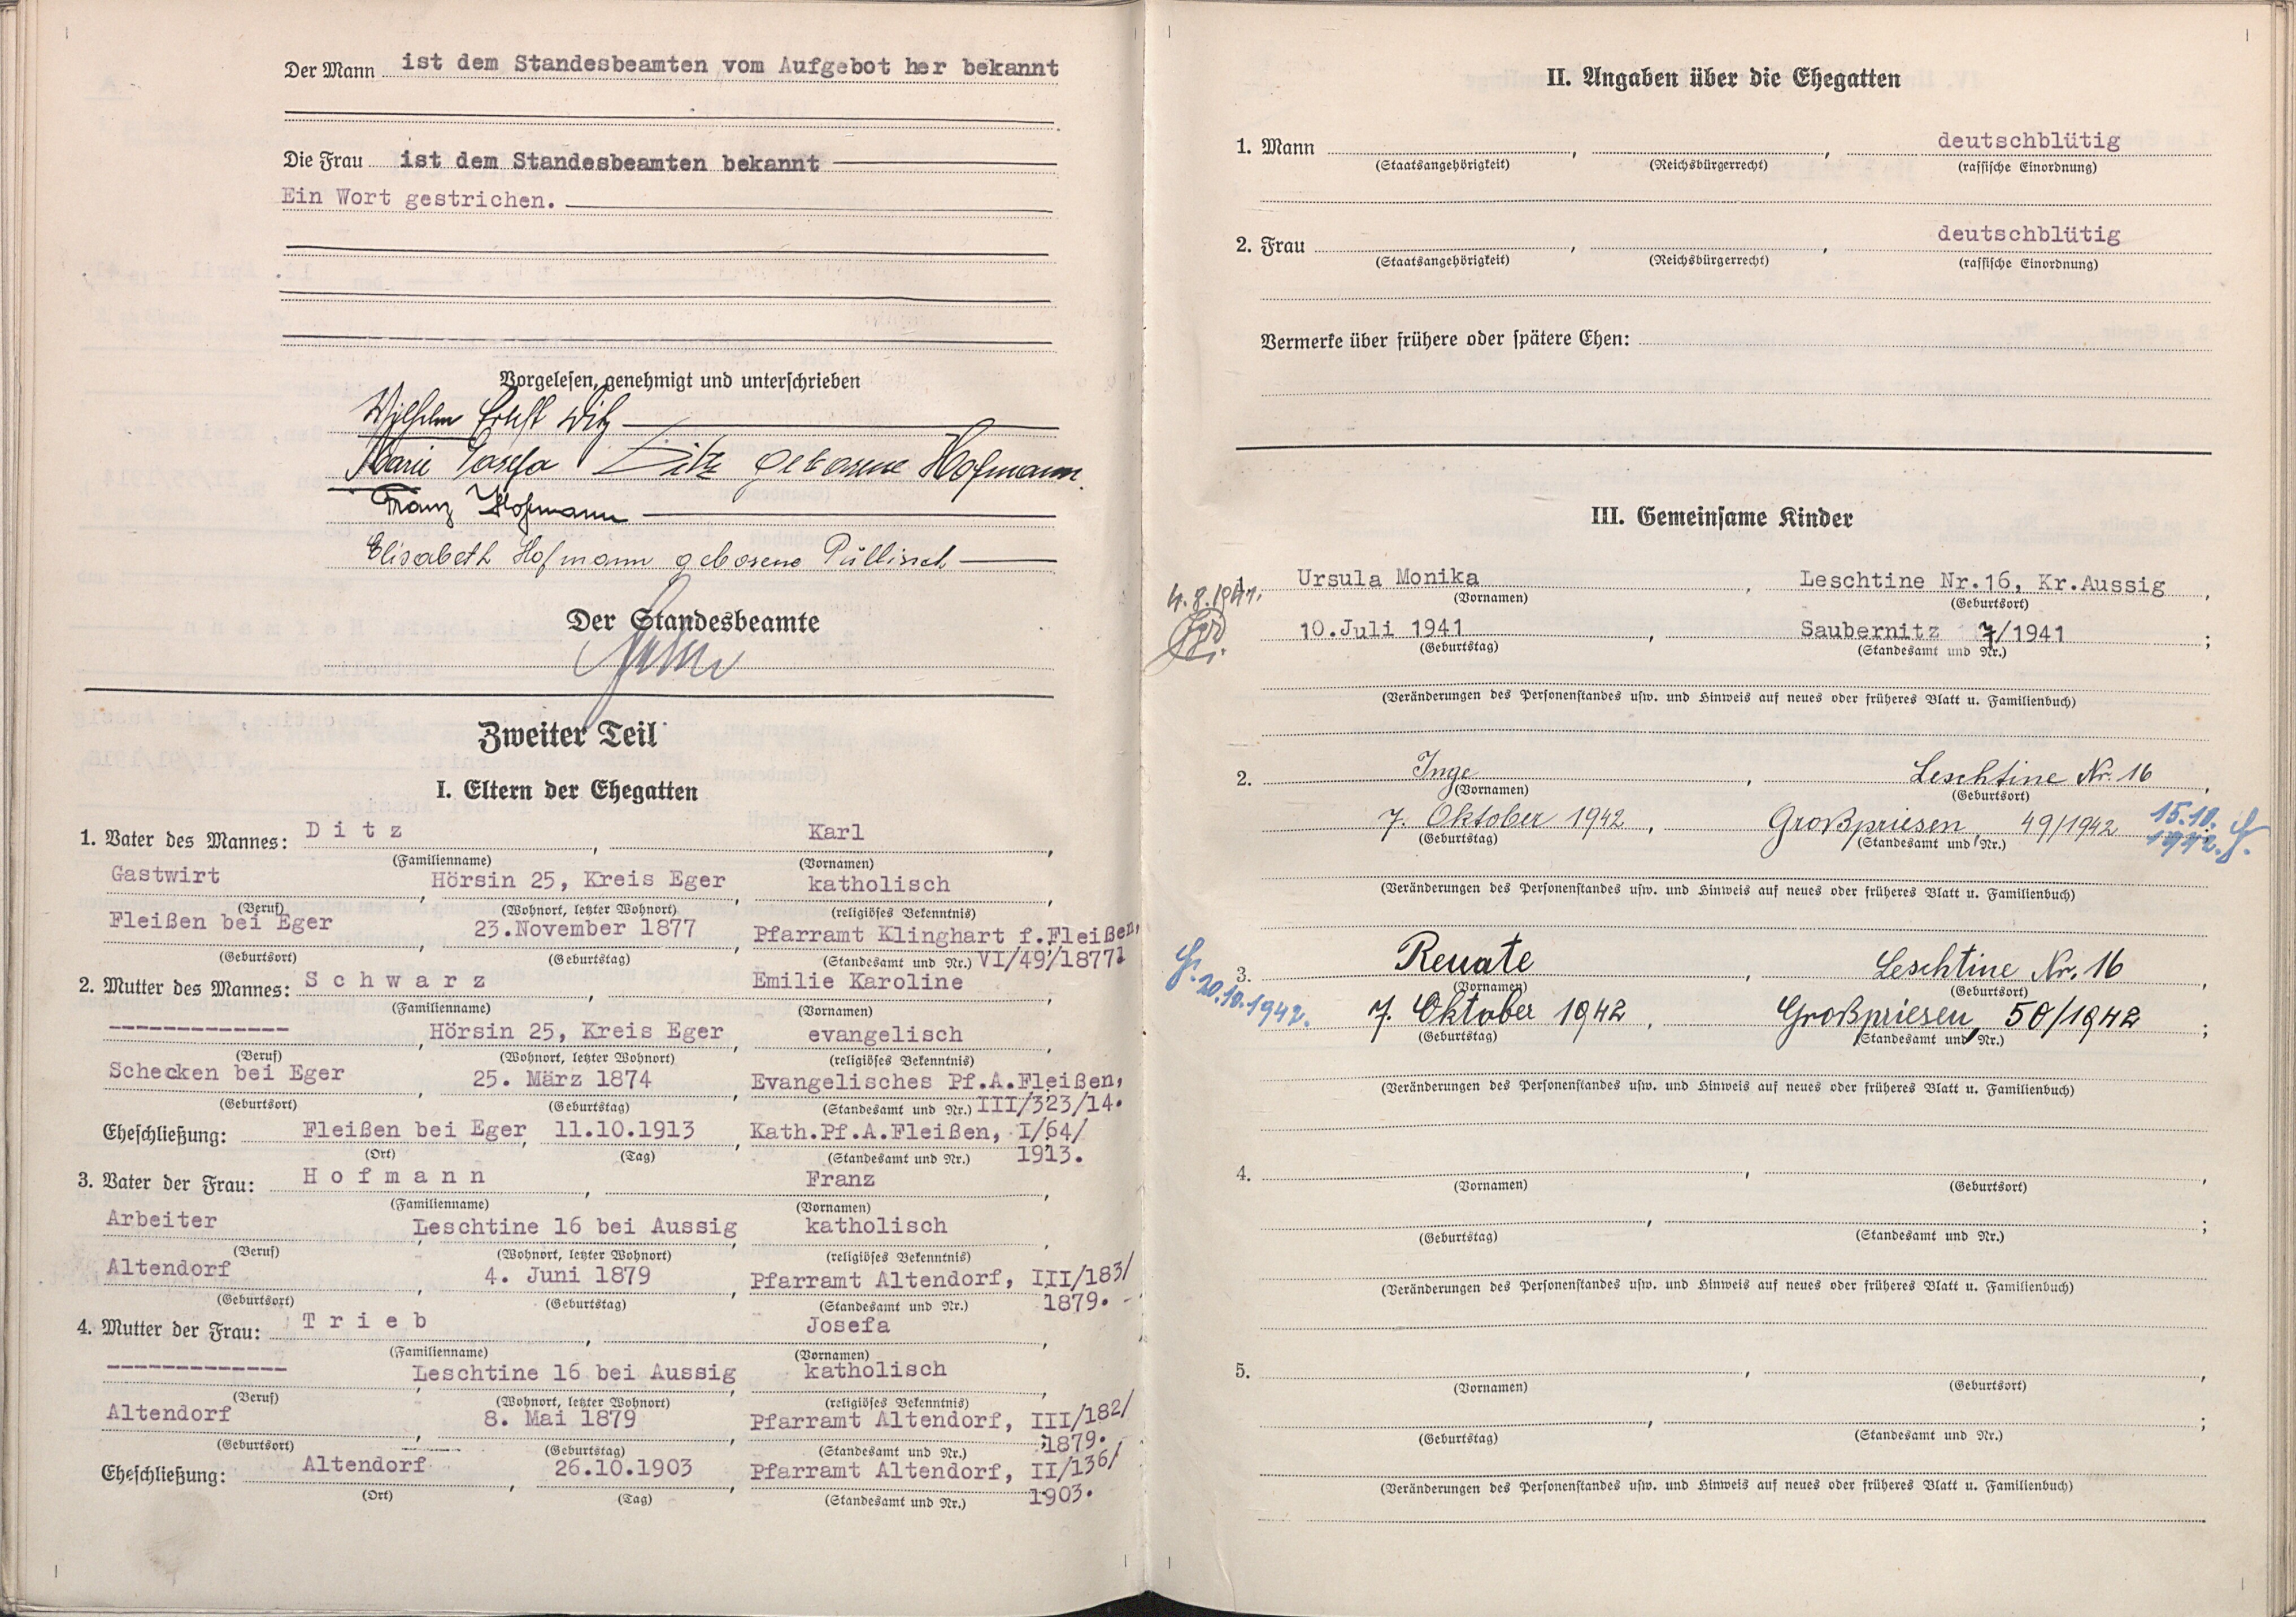 Der Mann ist dem Standesbeamten vom Aufgebot her bekannt
Die Frau ist dem Standesbeamten bekannt
Ein Wort gestrichen.
Vorgelesen, genehmigt und unterschrieben
Wilhelm Ernst Ditz
Marie Josefa Ditz geborene Hofmann.
Franz Hofmann
Elisabeth Hofmann geborene Püllisch
Der Standesbeamte
Zweiter Teil
I. Eltern der Ehegatten
1. Vater des Mannes: Ditz, Karl,
(Familienname) (Vornamen)
Gastwirt, Hörsin 25, Kreis Eger, katholisch,
(Beruf) (Wohnort, letzter Wohnort) (religiöses Bekenntnis)
Fleißen bei Eger, 23.November 1877, Pfarramt Klinghart f.Fleißen,
(Geburtsort) (Geburtstag) (Standesamt und Nr.) VI/49/1877;
2. Mutter des Mannes: Schwarz, Emilie Karoline,
(Familienname) (Vornamen)
-------------, Hörsin 25, Kreis Eger, evangelisch,
(Beruf) (Wohnort, letzter Wohnort) (religiöses Bekenntnis)
Schecken bei Eger, 25. März 1874, Evangelisches Pf.A.Fleißen,
(Geburtsort) (Geburtstag) (Standesamt und Nr.) III/323/14.
Eheschließung: Fleißen bei Eger, 11.10.1913, Kath.Pf.A.Fleißen, I/64/
(Ort) (Tag) (Standesamt und Nr.) 1913.
3. Vater der Frau: Hofmann, Franz,
(Familienname) (Vornamen)
Arbeiter, Leschtine 16 bei Aussig, katholisch,
(Beruf) (Wohnort, letzter Wohnort) (religiöses Bekenntnis)
Altendorf, 4. Juni 1879, Pfarramt Altendorf, III/183/
(Geburtsort) (Geburtstag) (Standesamt und Nr.) 1879.
4. Mutter der Frau: Trieb, Josefa,
(Familienname) (Vornamen)
-------------, Leschtine 16 bei Aussig, katholisch,
(Beruf) (Wohnort, letzter Wohnort) (religiöses Bekenntnis)
Altendorf, 8. Mai 1879, Pfarramt Altendorf, III/182/
(Geburtsort) (Geburtstag) (Standesamt und Nr.) 1879.
Eheschließung: Altendorf, 26.10.1903, Pfarramt Altendorf, II/136/
(Ort) (Tag) (Standesamt und Nr.) 1903.
II. Angaben über die Ehegatten
1. Mann , , deutschblütig
(Staatsangehörigkeit) (Reichsbürgerrecht) (rassische Einordnung)
2. Frau , , deutschblütig
(Staatsangehörigkeit) (Reichsbürgerrecht) (rassische Einordnung)
Vermerke über frühere oder spätere Ehen:
III. Gemeinsame Kinder
Ursula Monika, Leschtine Nr.16, Kr.Aussig,
4.8.1941.
(Vornamen) (Geburtsort)
10.Juli 1941, Saubernitz 7/1941;
(Geburtstag) (Standesamt und Nr.)
(Veränderungen des Personenstandes usw. und Hinweis auf neues oder früheres Blatt u. Familienbuch)
2. Inge, Leschtine Nr. 16,
(Vornamen) (Geburtsort)
7. Oktober 1942, Großpriesen, 49/1942 15.10.
(Geburtstag) (Standesamt und Nr.) 1942.
(Veränderungen des Personenstandes usw. und Hinweis auf neues oder früheres Blatt u. Familienbuch)
3. Renate, Leschtine Nr. 16
(Vornamen) (Geburtsort)
20.10.1942. 7. Oktober 1942, Großpriesen, 50/1942;
(Geburtstag) (Standesamt und Nr.)
(Veränderungen des Personenstandes usw. und Hinweis auf neues oder früheres Blatt u. Familienbuch)
4. , ,
(Vornamen) (Geburtsort)
, ;
(Geburtstag) (Standesamt und Nr.)
(Veränderungen des Personenstandes usw. und Hinweis auf neues oder früheres Blatt u. Familienbuch)
5. , ,
(Vornamen) (Geburtsort)
, ;
(Geburtstag) (Standesamt und Nr.)
(Veränderungen des Personenstandes usw. und Hinweis auf neues oder früheres Blatt u. Familienbuch)